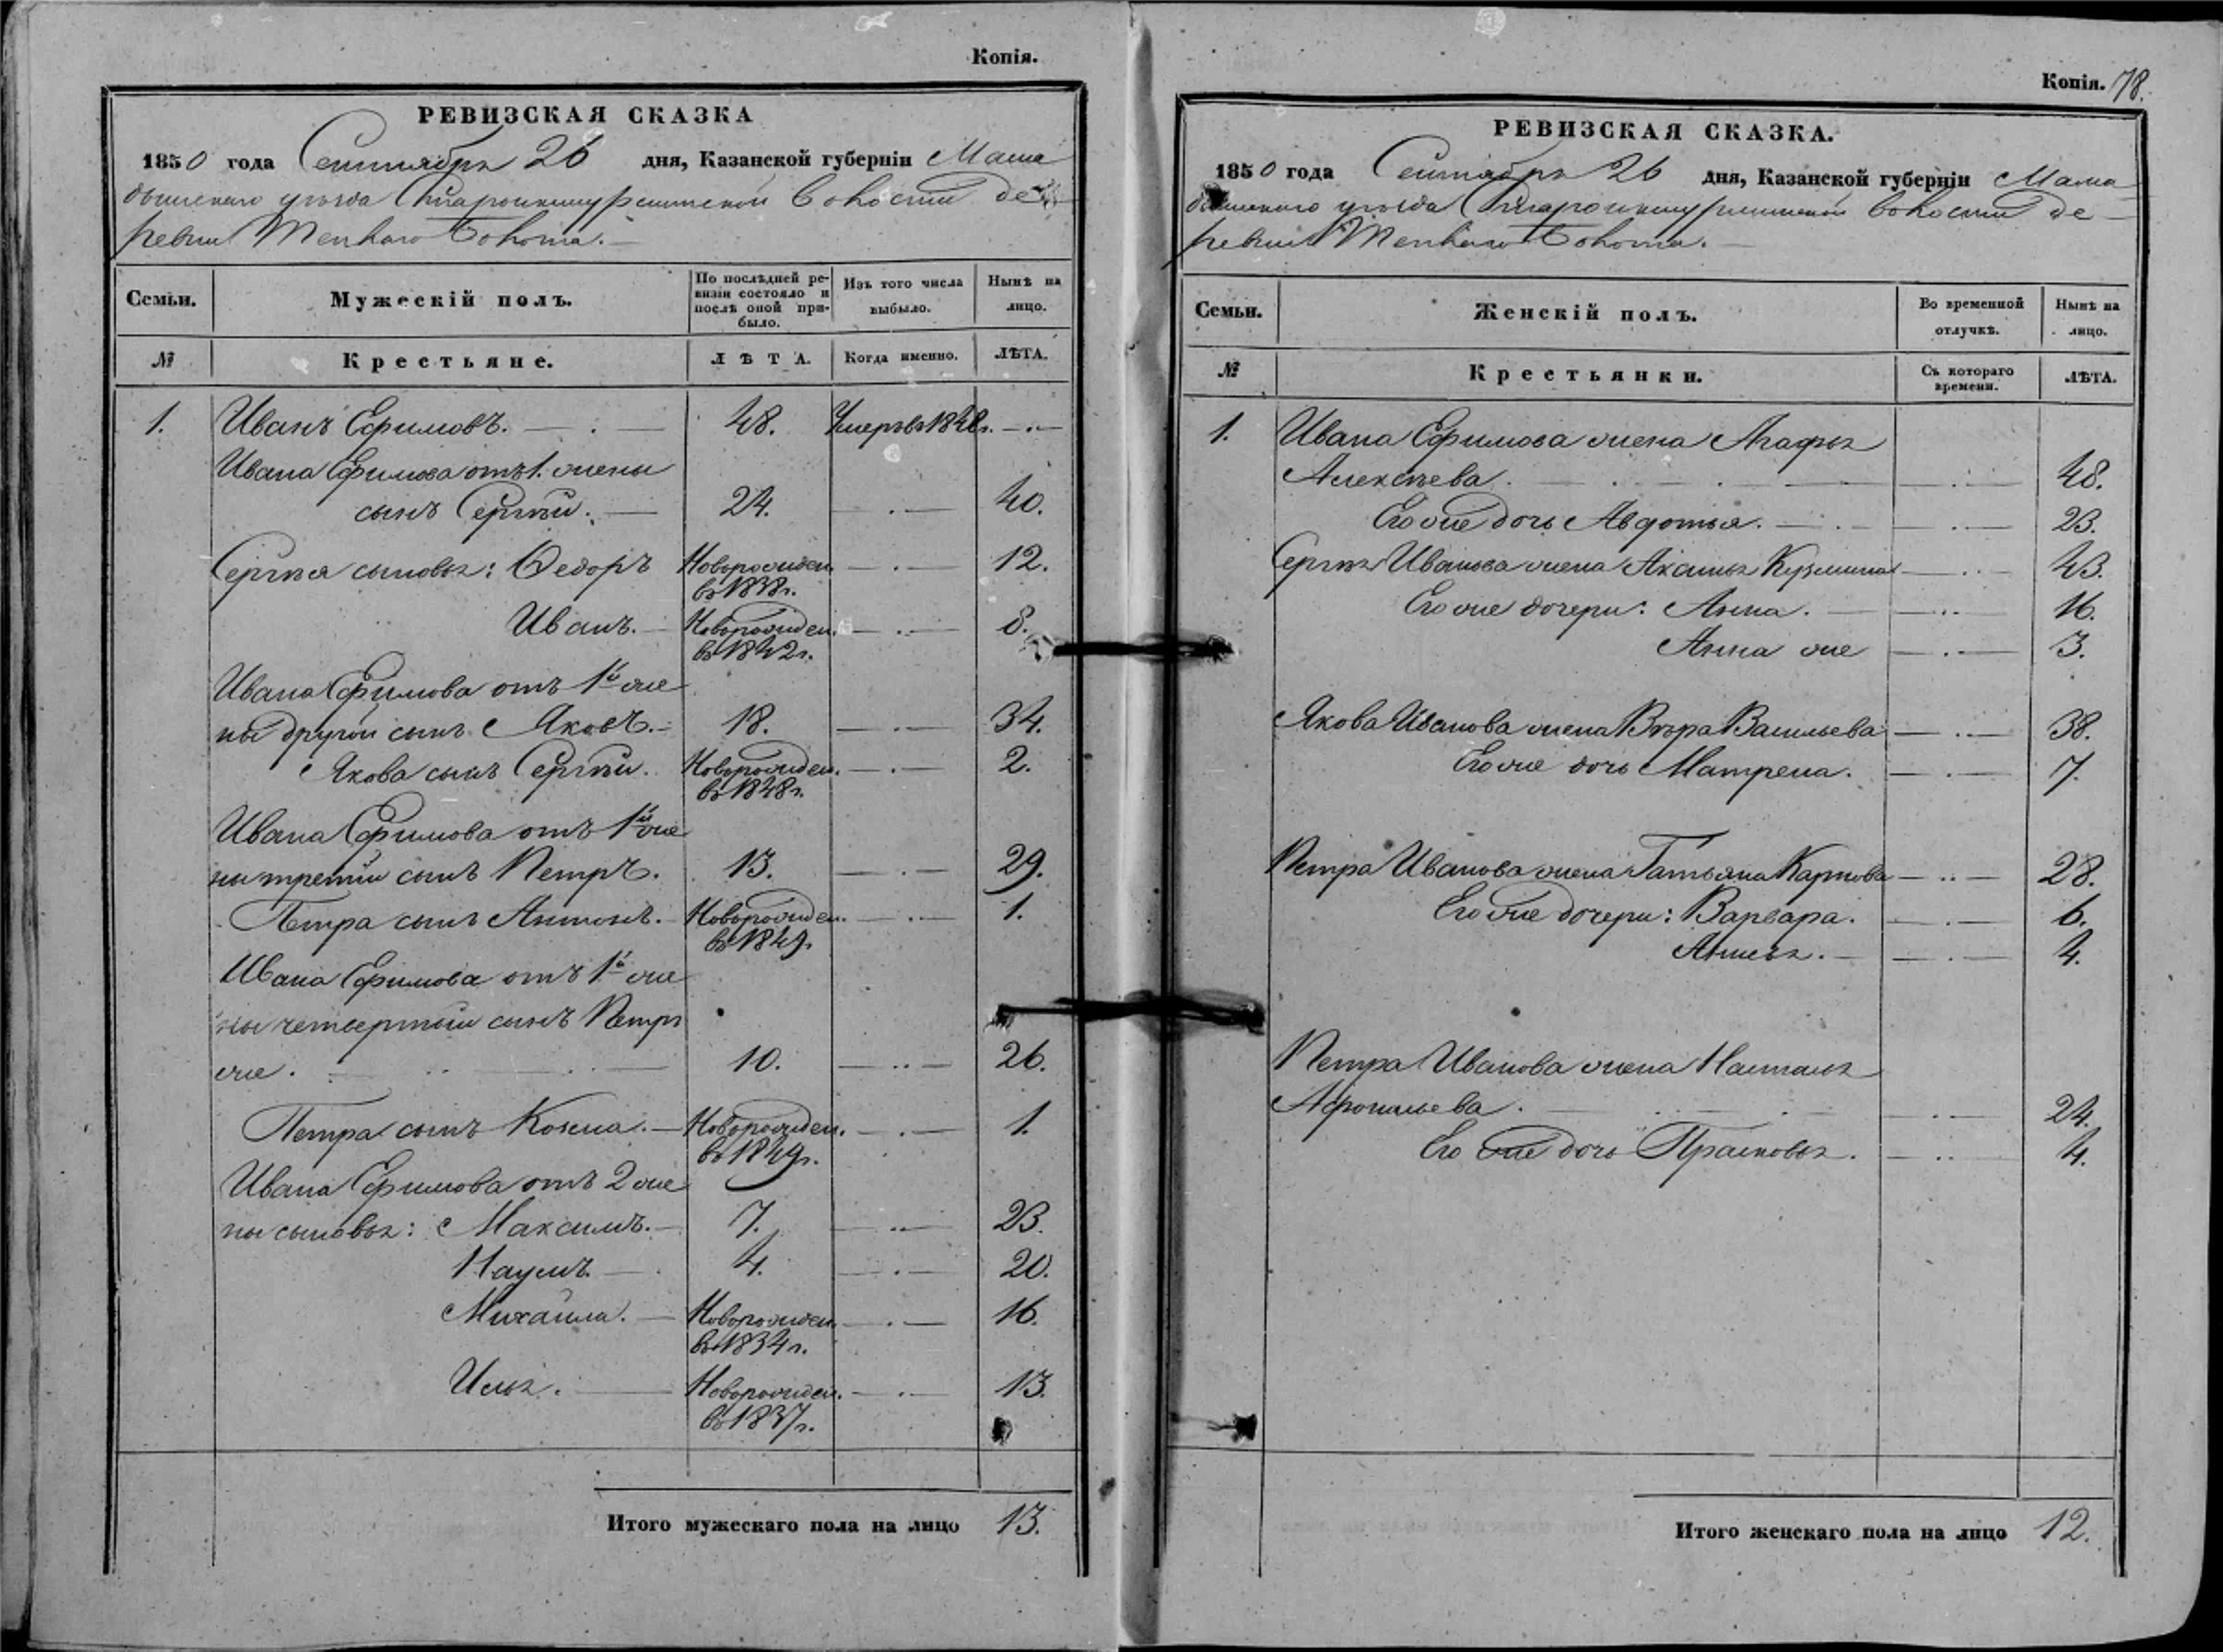 Копія.
РЕВИЗСКАЯ СКАЗКА
1850 года Сентября 26 дня, Казанской губерніи Мама
дышскаго уѣзда Волости де
ревни
Семьи. Мужескій полъ. По послѣдней ревизіи состояло и послѣ оной прибыло. Изъ того числа выбыло. Нынѣ на лицо.
№ Крестьяне. ЛѢТА. Когда именно. ЛѢТА.
1. Иванъ Ефимовъ. 48. Умеръ въ 1848 г.
Ивана Ефимова отъ 1. жены
сынъ Сергѣй. 24. 40.
Сергѣя сыновья: Ѳедоръ Новорожден. 12.
въ 1838 г.
Иванъ. Новорожден. 8.
въ 1842 г.
Ивана Ефимова отъ 1й же
ны другой сынъ Яковъ. 18. 34.
Якова сынъ Сергѣй. Новорожден. 2.
въ 1848 г.
Ивана Ефимова отъ 1й же
ны третій сынъ Петръ. 13. 29.
Петра сынъ Антонъ. Новорожден. 1.
въ 1849.
Ивана Ефимова отъ 1й же
ны четвертый сынъ Петръ
же. 10. 26.
Петра сынъ Козма. Новорожден. 1.
въ 1849 г.
Ивана Ефимова отъ 2 же
ны сыновья: Максимъ. 7. 23.
Наумъ. 4. 20.
Михайла. Новорожден. 16.
въ 1834 г.
Илья. Новорожден. 13.
въ 1837 г.
Итого мужескаго пола на лицо 13.
Копія. 78.
РЕВИЗСКАЯ СКАЗКА.
1850 года Сентября 26 дня, Казанской губерніи Мама
дышскаго уѣзда Волости де
ревни
Семьи. Женскій полъ. Во временной отлучкѣ. Нынѣ на лицо.
№ Крестьянки. Съ котораго времени. ЛѢТА.
1. Ивана Ефимова жена Агафья
Алексѣева. 48.
Его же дочь Авдотья. 23.
Сергѣя Иванова жена Аксинья Кузмина 43.
Его же дочери: Анна. 16.
Анна же 3.
Якова Иванова жена Вѣра Васильева 38.
Его же дочь Матрена. 7.
Петра Иванова жена Татьяна Карпова 28.
Его же дочери: Варвара. 6.
4.
Петра Иванова жена Настасья
24.
Его же дочь Прасковья. 4.
Итого женскаго пола на лицо 12.